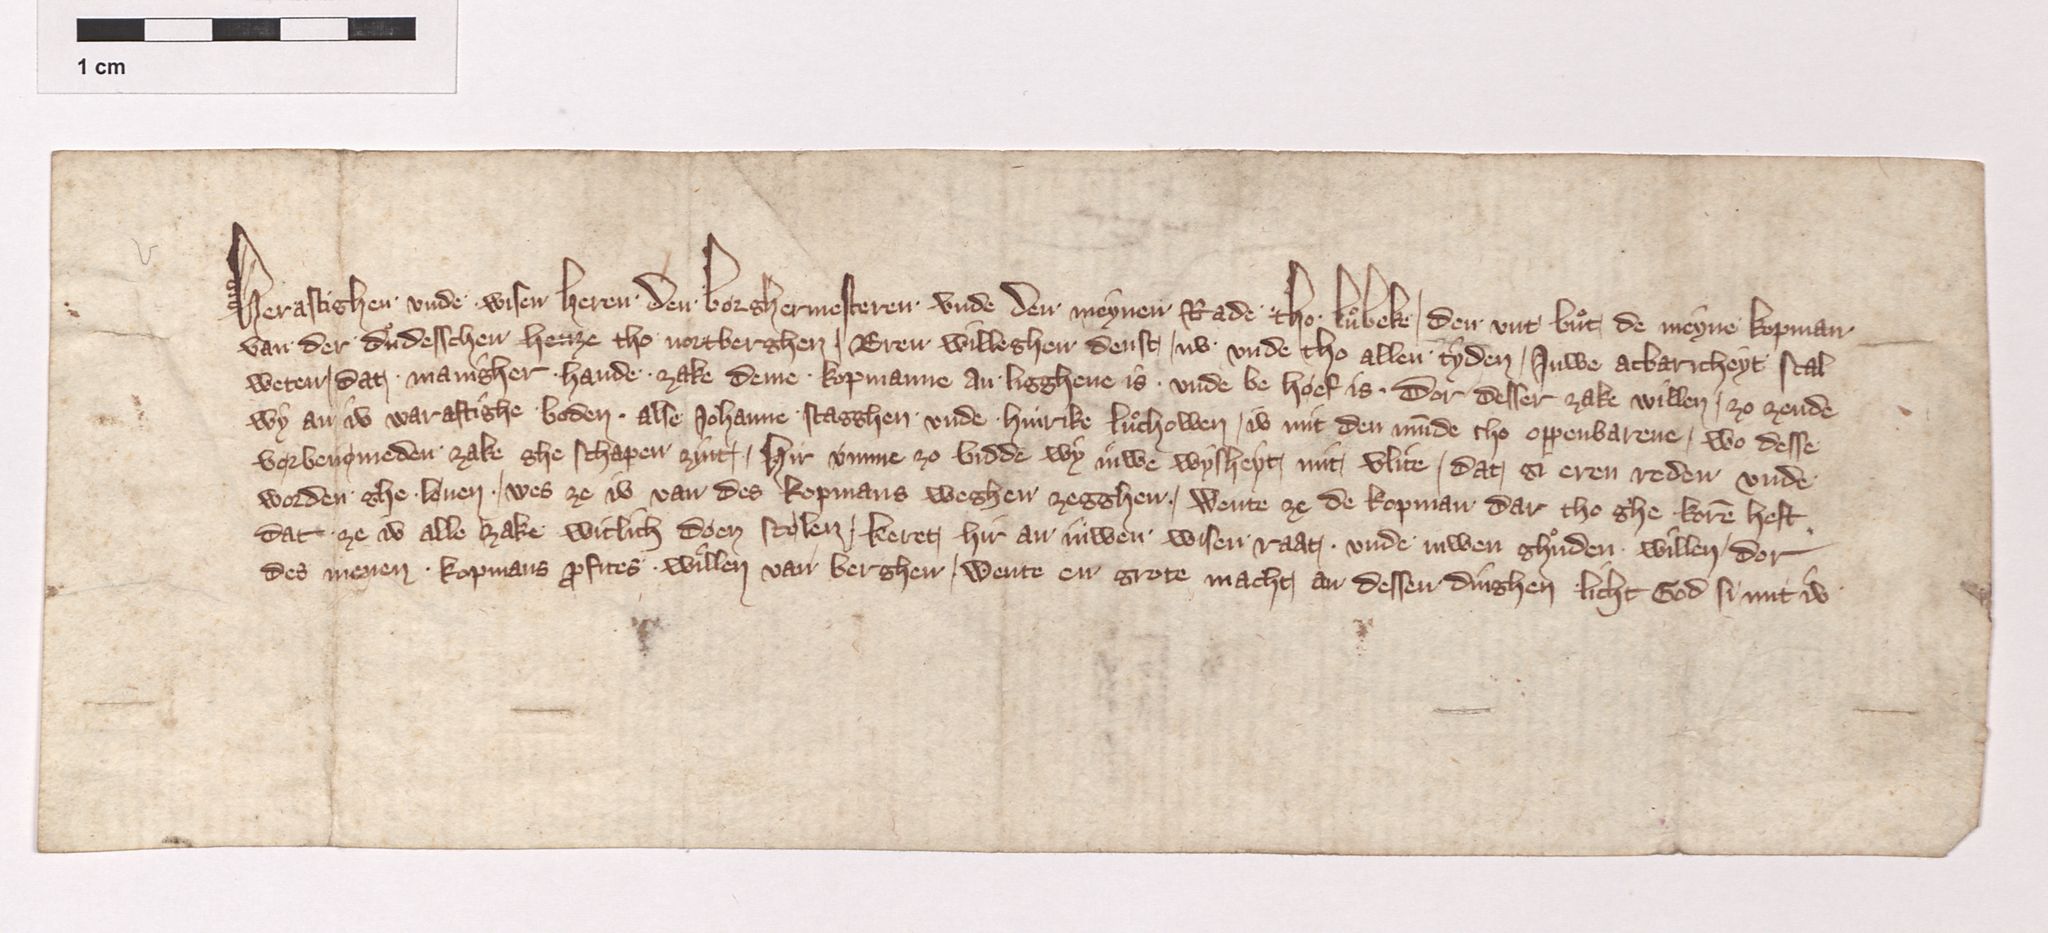 1 cm
Verastighen vnde wisen heren den borghermesteren vnde den meynen Rade tho lůbeke / den vnt bůt de meyne kopman
van der důdesschen henze tho nortberghen / Eren willeghen denst / nv vnde tho allen tyden / Juwe acbaricheyt scal
weten / dat manigher hande zake deme kopmanne an ligghene is vnde be hoef is Dor desser zake willen / zo zende
wy an iv warastighe boden alse Johanne stagghen vnde hinrike lůchowen / iv mit den mu̅de tho oppenbarene / wo desse
vorbenomeden zake ghe schapen zint / Hir vmme zo bidde wy iuwe wysheyt mit vlite / dat gi eren reden vnde
worden ghe louen / wes ze iv van des kopmans weghen zegghen / Wente ze de kopman dar tho ghe kore̅ heft
dat ze iv alle zake witlich doen scolen / keret hir an iuwen wisen raat vnde iuwen ghůden willen / dor
des menen kopmans ꝓfites willen van berghen / Wente en grote macht an dessen dinghen licht God si mit iv